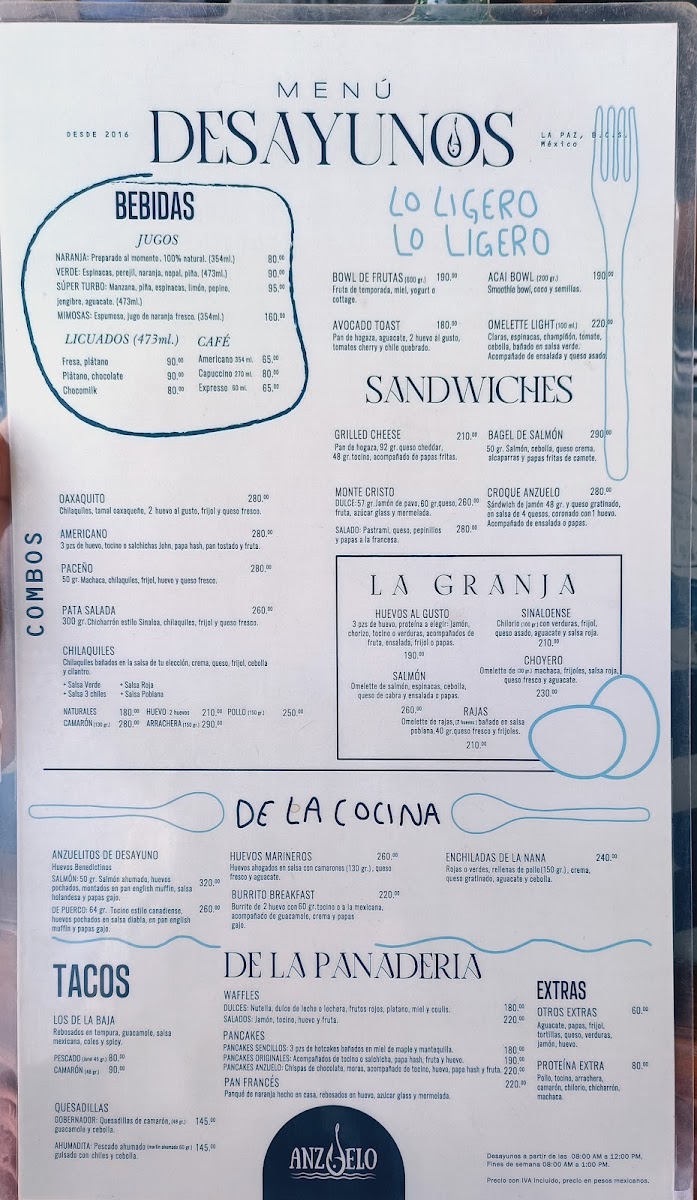 MENÚ
DESDE 2016
DESAYUNOS
LA PAZ, B.C.S.
México
BEBIDAS
JUGOS
NARANJA: Preparado al momento. 100% natural. (354ml.) 80.00
VERDE: Espinacas, perejil, naranja, nopal, piña. (473ml.) 90.00
SÚPER TURBO: Manzana, piña, espinacas, limón, pepino, 95.00
jengibre, aguacate. (473ml.)
MIMOSAS: Espumoso, jugo de naranja fresco. (354ml.) 160.00
LICUADOS (473ml.)
Fresa, plátano 90.00
Plátano, chocolate 90.00
Chocomilk 80.00
CAFÉ
Americano 354 ml. 65.00
Capuccino 270 ml. 80.00
Expresso 60 ml. 65.00
LO LIGERO
LO LIGERO
BOWL DE FRUTAS (600 gr.) 190.00
Fruta de temporada, miel, yogurt o
cottage.
ACAI BOWL (200 gr.) 190.00
Smoothie bowl, coco y semillas.
AVOCADO TOAST 180.00
Pan de hogaza, aguacate, 2 huevo al gusto,
tomates cherry y chile quebrado.
OMELETTE LIGHT (100 ml.) 220.00
Claras, espinacas, champiñón, tomate,
cebolla, bañado en salsa verde.
Acompañado de ensalada y queso asado.
SANDWICHES
GRILLED CHEESE 210.00
Pan de hogaza, 92 gr. queso cheddar,
48 gr. tocino, acompañado de papas fritas.
BAGEL DE SALMÓN 290.00
50 gr. Salmón, cebolla, queso crema,
alcaparras y papas fritas de camote.
MONTE CRISTO
DULCE: 57 gr. Jamón de pavo, 60 gr. queso, 260.00
fruta, azúcar glass y mermelada.
SALADO: Pastrami, queso, pepinillos 280.00
y papas a la francesa.
CROQUE ANZUELO 280.00
Sándwich de jamón 48 gr. y queso gratinado,
en salsa de 4 quesos, coronado con 1 huevo.
Acompañado de ensalada o papas.
COMBOS
OAXAQUITO 280.00
Chilaquiles, tamal oaxaqueño, 2 huevo al gusto, frijol y queso fresco.
AMERICANO 280.00
3 pzs de huevo, tocino o salchichas John, papa hash, pan tostado y fruta.
PACEÑO 280.00
50 gr. Machaca, chilaquiles, frijol, huevo y queso fresco.
PATA SALADA 260.00
300 gr. Chicharrón estilo Sinaloa, chilaquiles, frijol y queso fresco.
CHILAQUILES
Chilaquiles bañados en la salsa de tu elección, crema, queso, frijol, cebolla
y cilantro.
• Salsa Verde • Salsa Roja
• Salsa 3 chiles • Salsa Poblana
NATURALES 180.00 HUEVO 2 huevos 210.00 POLLO (150 gr.) 250.00
CAMARÓN (130 gr.) 280.00 ARRACHERA (150 gr.) 290.00
LA GRANJA
HUEVOS AL GUSTO
3 pzs de huevo, proteína a elegir: jamón,
chorizo, tocino o verduras, acompañados de
fruta, ensalada, frijol o papas.
190.00
SINALOENSE
Chilorio (100 gr) con verduras, frijol,
queso asado, aguacate y salsa roja.
210.00
CHOYERO
Omelette de (30 gr.) machaca, frijoles, salsa roja,
queso fresco y aguacate.
230.00
SALMÓN
Omelette de salmón, espinacas, cebolla,
queso de cabra y ensalada o papas.
260.00
RAJAS
Omelette de rajas, (2 huevos) bañado en salsa
poblana, 40 gr. queso fresco y frijoles.
210.00
DE LA COCINA
ANZUELITOS DE DESAYUNO
Huevos Benedictinos
SALMÓN: 50 gr. Salmón ahumado, huevos 320.00
pochados, montados en pan english muffin, salsa
holandesa y papas gajo.
DE PUERCO: 64 gr. Tocino estilo canadiense, 260.00
huevos pochados en salsa diabla, en pan english
muffin y papas gajo.
HUEVOS MARINEROS 260.00
Huevos ahogados en salsa con camarones (130 gr.), queso
fresco y aguacate.
BURRITO BREAKFAST 220.00
Burrito de 2 huevo con 60 gr. tocino o a la mexicana,
acompañado de guacamole, crema y papas
gajo.
ENCHILADAS DE LA NANA 240.00
Rojas o verdes, rellenas de pollo (150 gr.), crema,
queso gratinado, aguacate y cebolla.
TACOS
LOS DE LA BAJA
Rebosados en tempura, guacamole, salsa
mexicana, coles y spicy.
PESCADO 80.00
CAMARÓN 90.00
QUESADILLAS
GOBERNADOR: Quesadillas de camarón, 145.00
guacamole y cebolla.
AHUMADITA: Pescado ahumado (marlín ahumado 60 gr.) 145.00
guisado con chiles y cebolla.
DE LA PANADERIA
WAFFLES
DULCES: Nutella, dulce de leche o lechera, frutos rojos, platano, miel y coulis. 180.00
SALADOS: Jamón, tocino, huevo y fruta. 220.00
PANCAKES
PANCAKES SENCILLOS: 3 pzs de hotcakes bañados en miel de maple y mantequilla. 180.00
PANCAKES ORIGINALES: Acompañados de tocino o salchicha, papa hash, fruta y huevo. 190.00
PANCAKES ANZUELO: Chispas de chocolate, moras, acompañado de tocino, huevo, papa hash y fruta. 220.00
PAN FRANCÉS 220.00
Panqué de naranja hecho en casa, rebosados en huevo, azúcar glass y mermelada.
EXTRAS
OTROS EXTRAS 60.00
Aguacate, papas, frijol,
tortillas, queso, verduras,
jamón, huevo.
PROTEÍNA EXTRA 80.00
Pollo, tocino, arrachera,
camarón, chilorio, chicharrón,
machaca.
ANZUELO
Desayunos a partir de las 08:00 AM a 12:00 PM,
Fines de semana 08:00 AM a 1:00 PM.
Precio con IVA incluido, precio en pesos mexicanos.